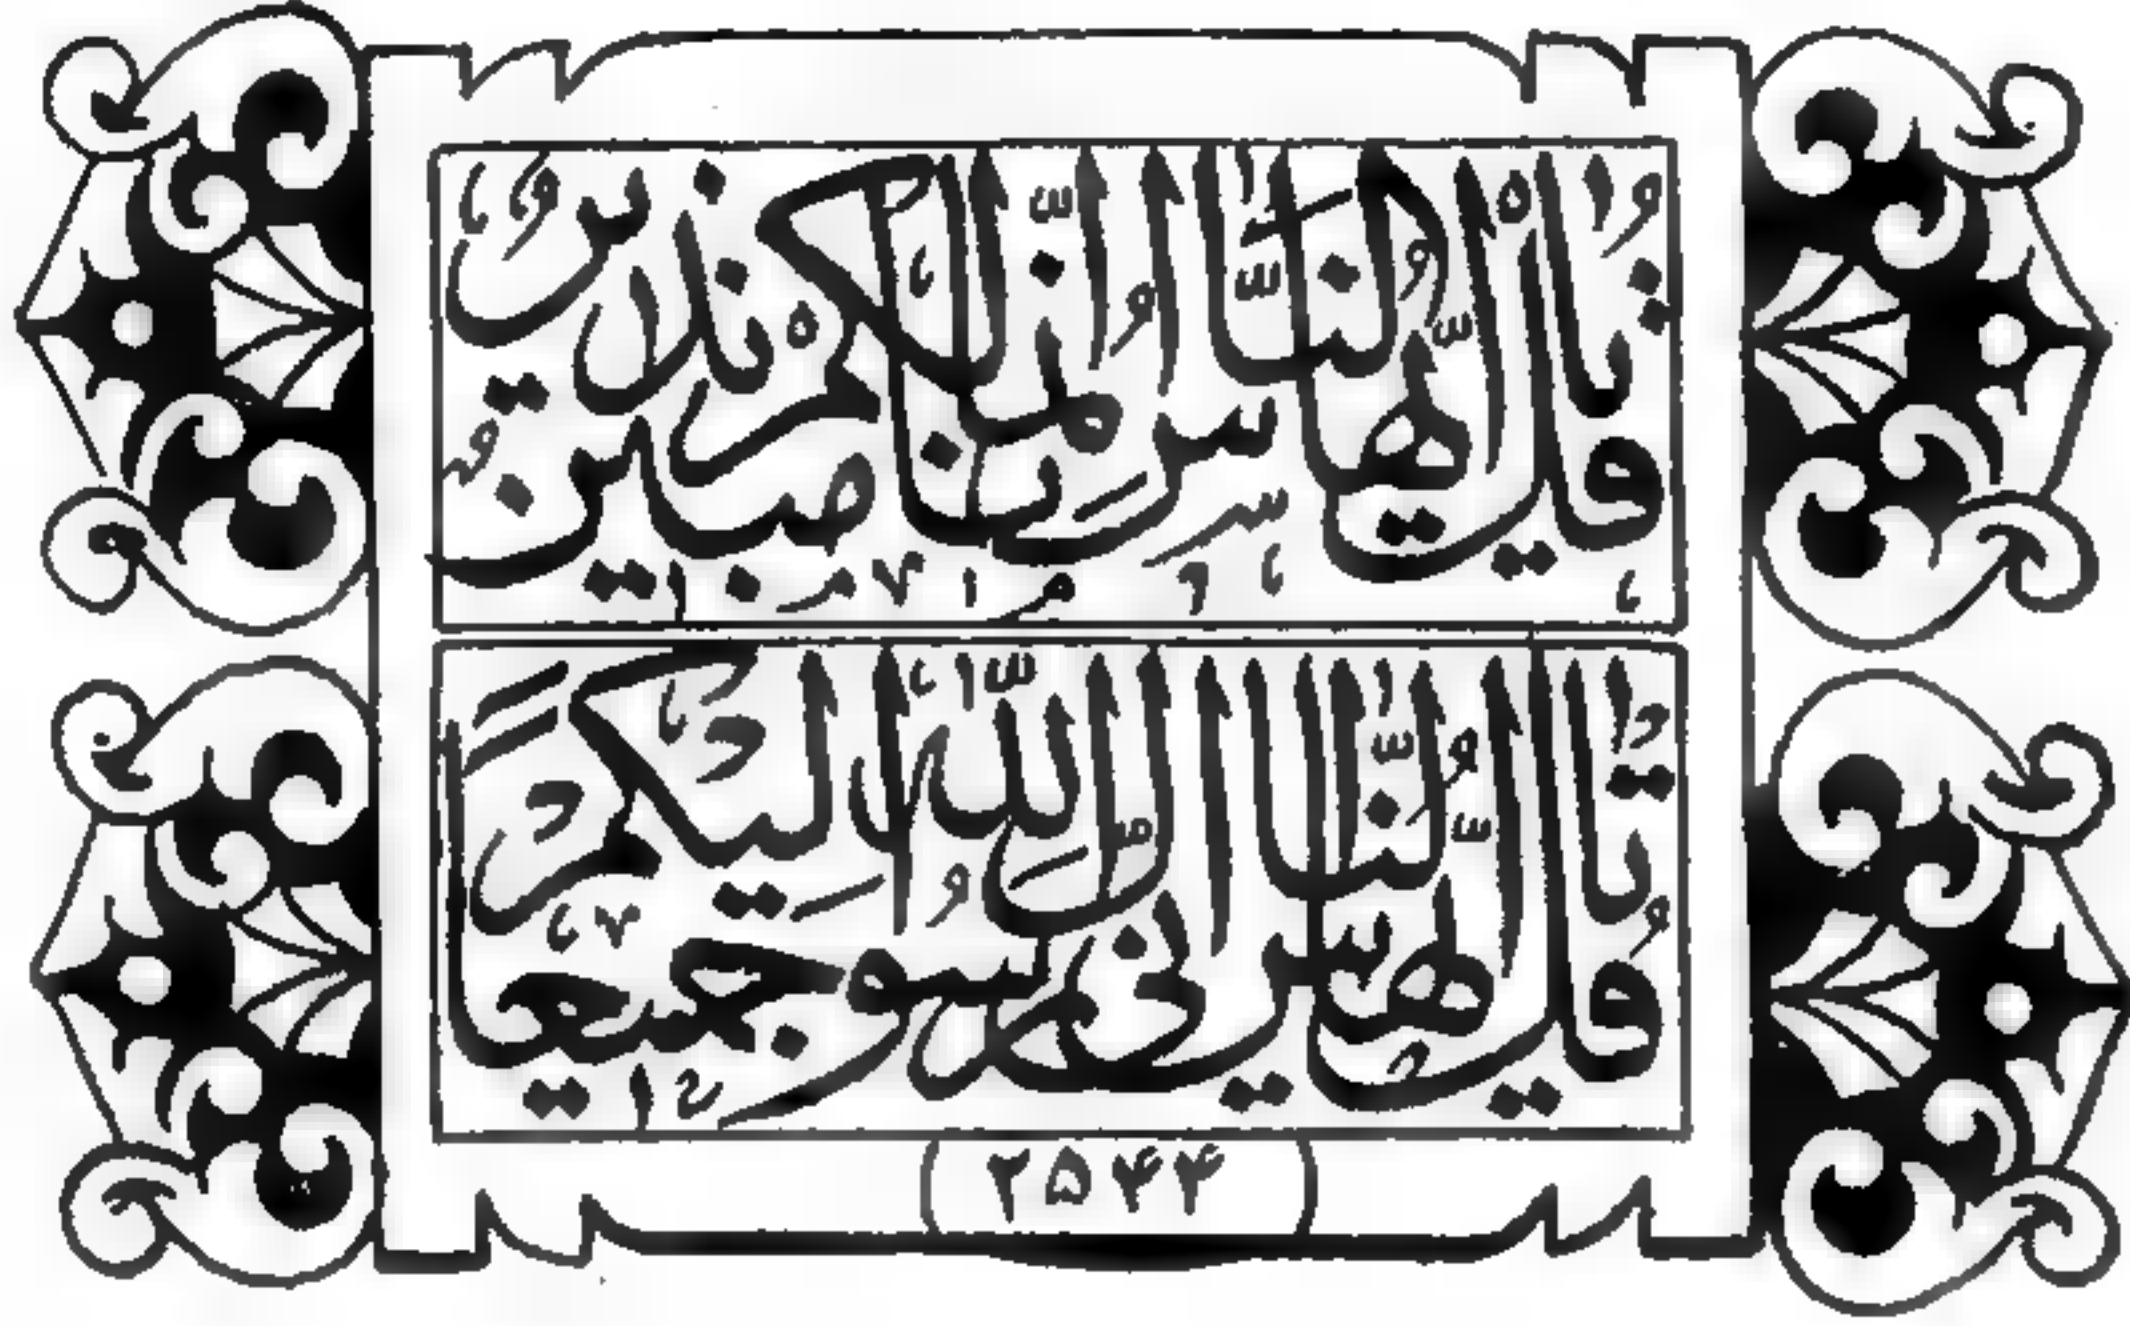 قُلْ يَا أَيُّهَا النَّاسُ إِنَّمَا أَنَا لَكُمْ نَذِيرٌ مُبِينٌ
قُلْ يَا أَيُّهَا النَّاسُ إِنِّي رَسُولُ اللَّهِ إِلَيْكُمْ جَمِيعًا
۲۵۴۴